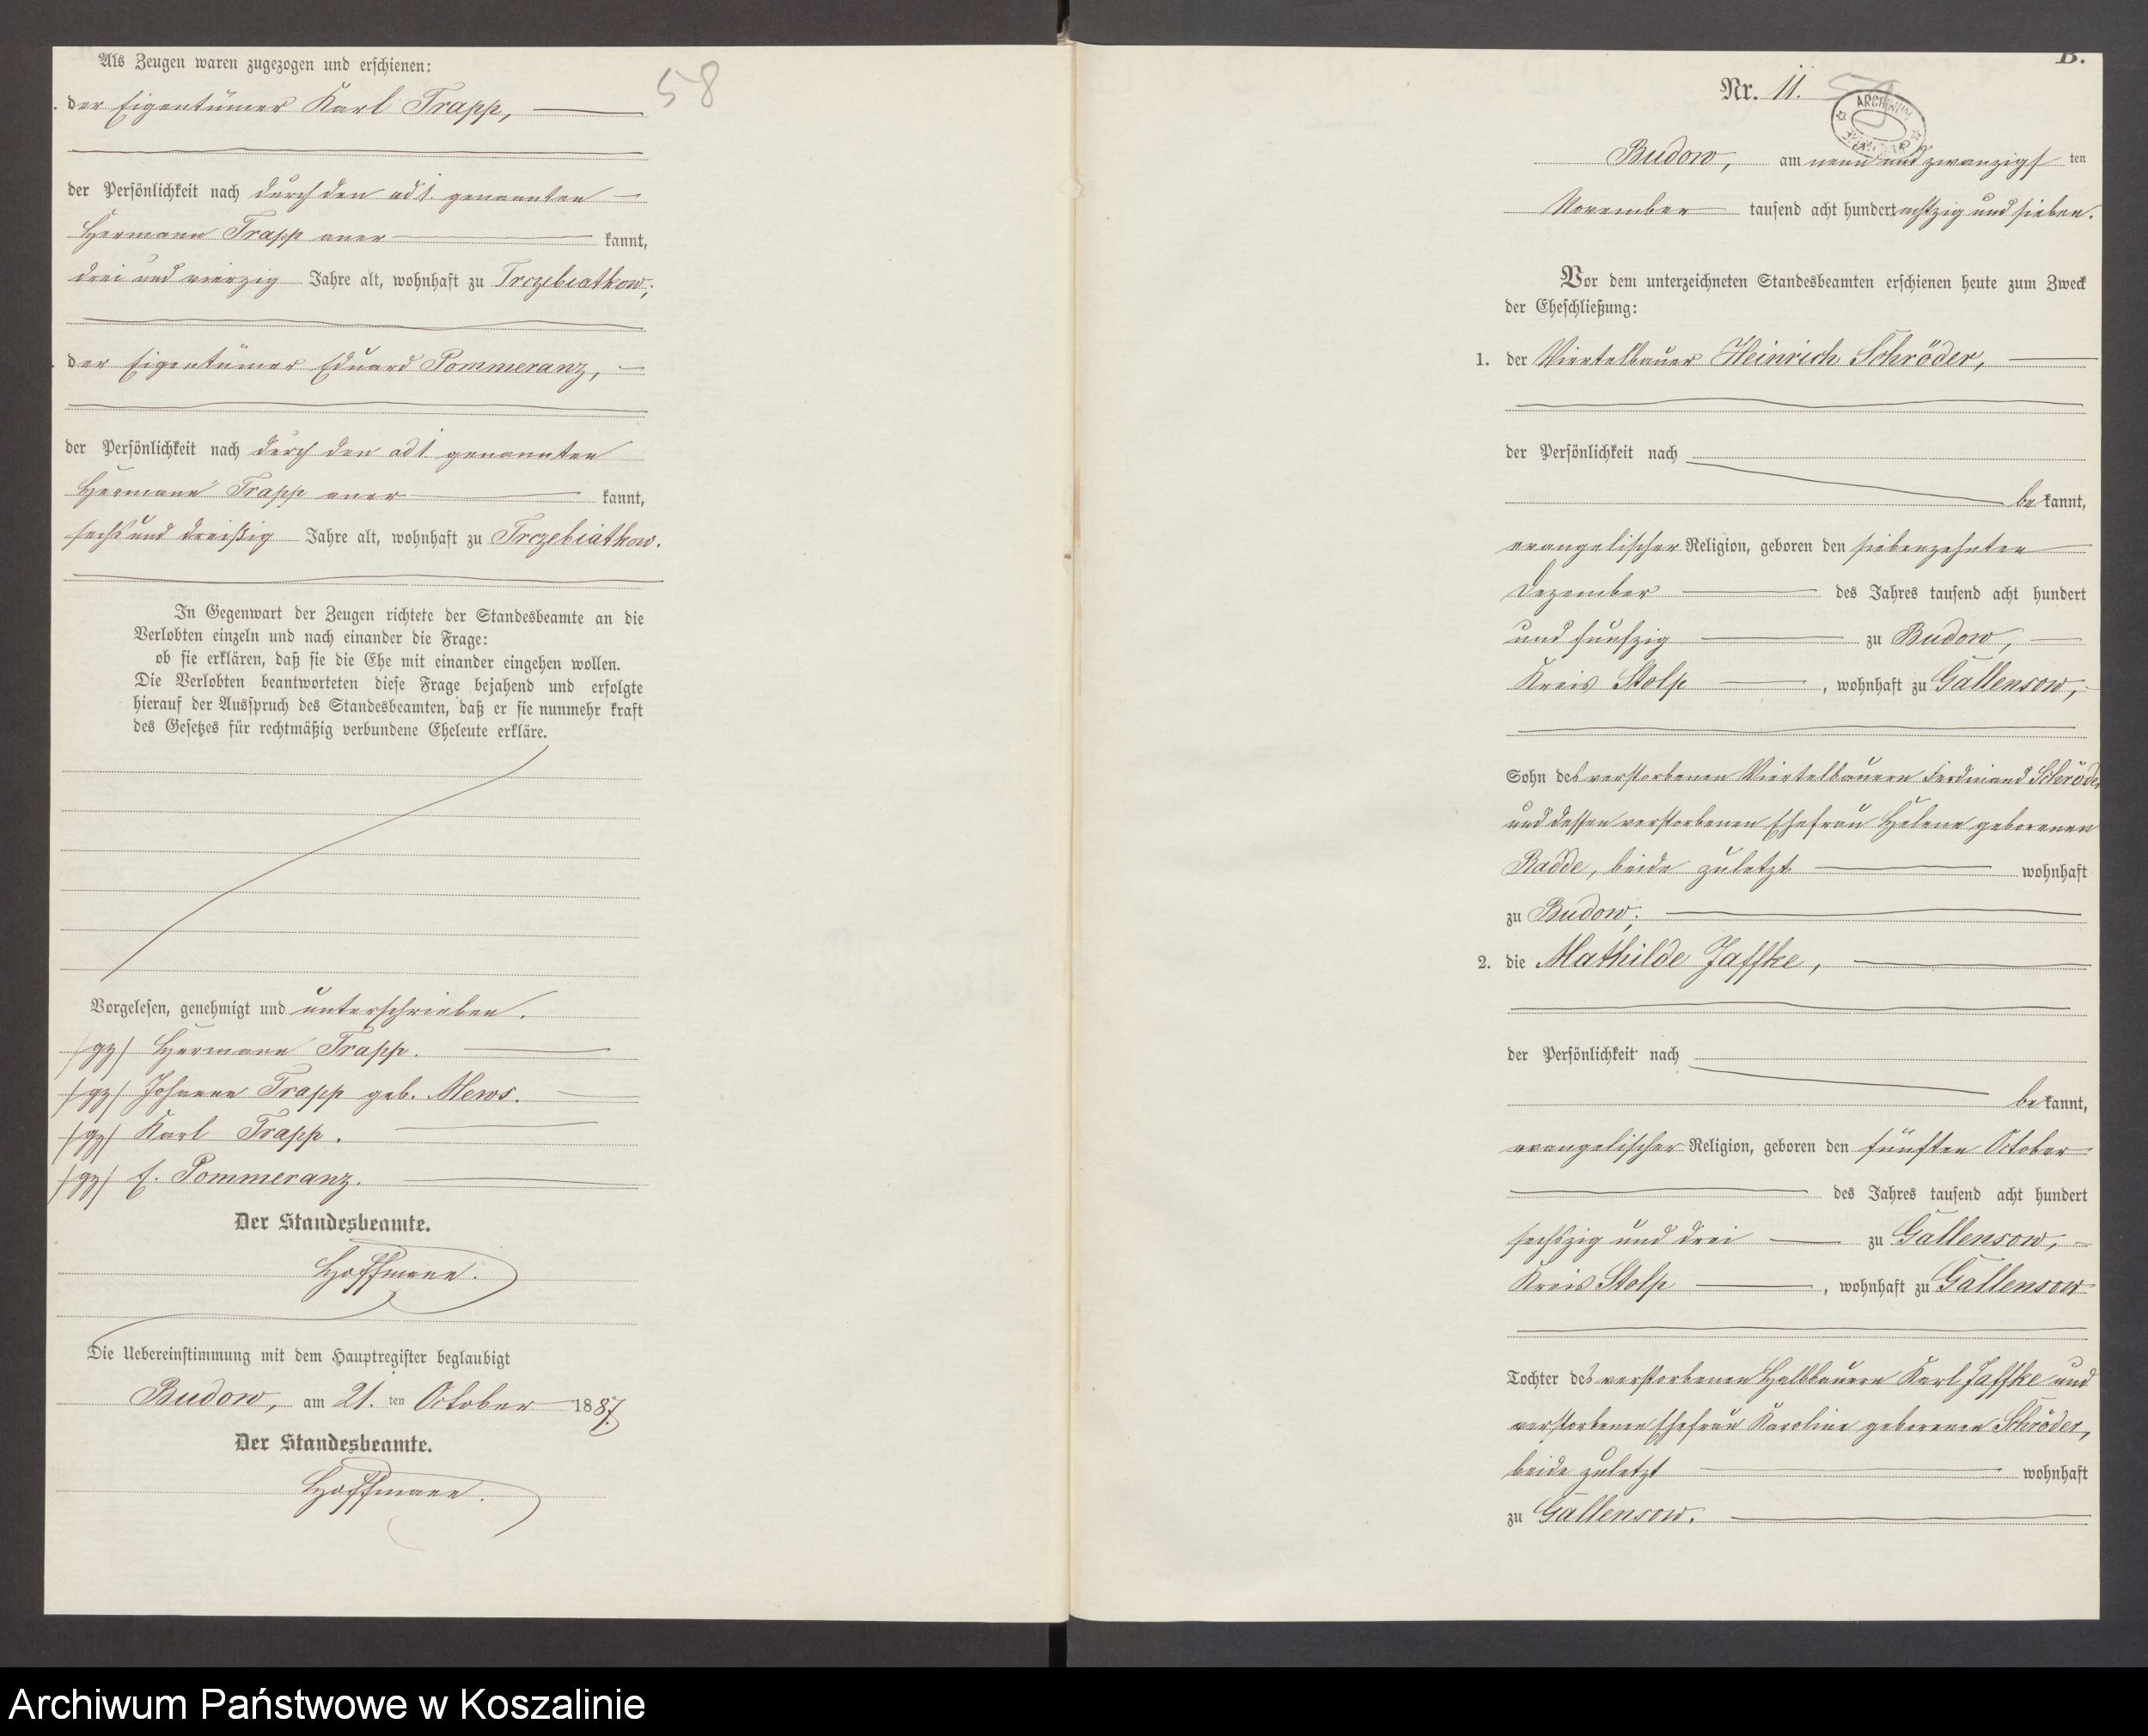 Als Zeugen waren zugezogen und erschienen:
der Eigentümer Karl Trapp,
58
der Persönlichkeit nach durch den ad 1. genannten
Hermann Trapp aner kannt,
drei und vierzig Jahre alt, wohnhaft zu Trczebiatkow;
der Eigentümer Eduard Pommeranz,
der Persönlichkeit nach durch den ad 1 genannten
Hermann Trapp aner kannt,
sechs und dreißig Jahre alt, wohnhaft zu Trczebiatkow.
In Gegenwart der Zeugen richtete der Standesbeamte an die
Verlobten einzeln und nach einander die Frage:
ob sie erklären, daß sie die Ehe mit einander eingehen wollen.
Die Verlobten beantworteten diese Frage bejahend und erfolgte
hierauf der Ausspruch des Standesbeamten, daß er sie nunmehr kraft
des Gesetzes für rechtmäßig verbundene Eheleute erkläre.
Vorgelesen, genehmigt und unterschrieben.
/gz/ Hermann Trapp.
/gz/ Johanne Trapp geb. Mews.
/gz/ Karl Trapp.
/gz/ E. Pommeranz.
Der Standesbeamte.
Hoffmann.
Die Uebereinstimmung mit dem Hauptregister beglaubigt
Budow, am 21. ten October 1887.
Der Standesbeamte.
Hoffmann.
B.
Nr. 11.
ARCHIWUM
Budow, am neun und zwanzigs ten
November tausend acht hundert achtzig und sieben.
Vor dem unterzeichneten Standesbeamten erschienen heute zum Zweck
der Eheschließung:
1. der Viertelbauer Heinrich Schröder,
der Persönlichkeit nach
be kannt,
evangelischer Religion, geboren den siebenzehnten
Dezember des Jahres tausend acht hundert
und funfzig zu Budow,
Kreis Stolp, wohnhaft zu Gallensow,
Sohn des verstorbenen Viertelbauern Ferdinand Schröder
und dessen verstorbenen Ehefrau Helene geborenen
Radde, beide zuletzt wohnhaft
zu Budow;
2. die Mathilde Jaffke,
der Persönlichkeit nach
be kannt,
evangelischer Religion, geboren den fünften October
des Jahres tausend acht hundert
sechszig und drei zu Gallensow,
Kreis Stolp, wohnhaft zu Gallensow
Tochter des verstorbenen Halbbauern Karl Jaffke und
verstorbenen Ehefrau Karoline geborenen Schröder,
beide zuletzt wohnhaft
zu Gallensow.
Archiwum Państwowe w Koszalinie